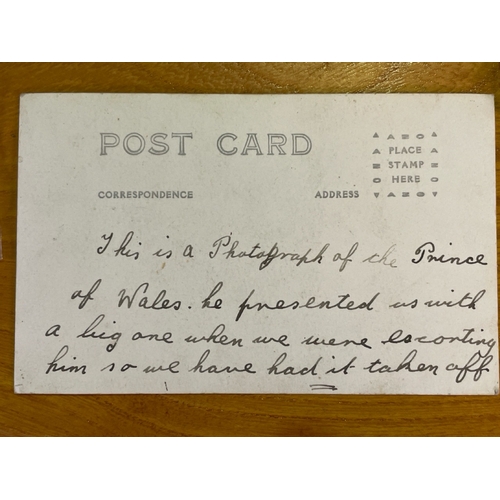 POST CARD
AZO
PLACE
STAMP
HERE
AZO
CORRESPONDENCE ADDRESS
This is a Photograph of the Prince
of Wales. he presented us with
a big one when we were escorting
him so we have had it taken off